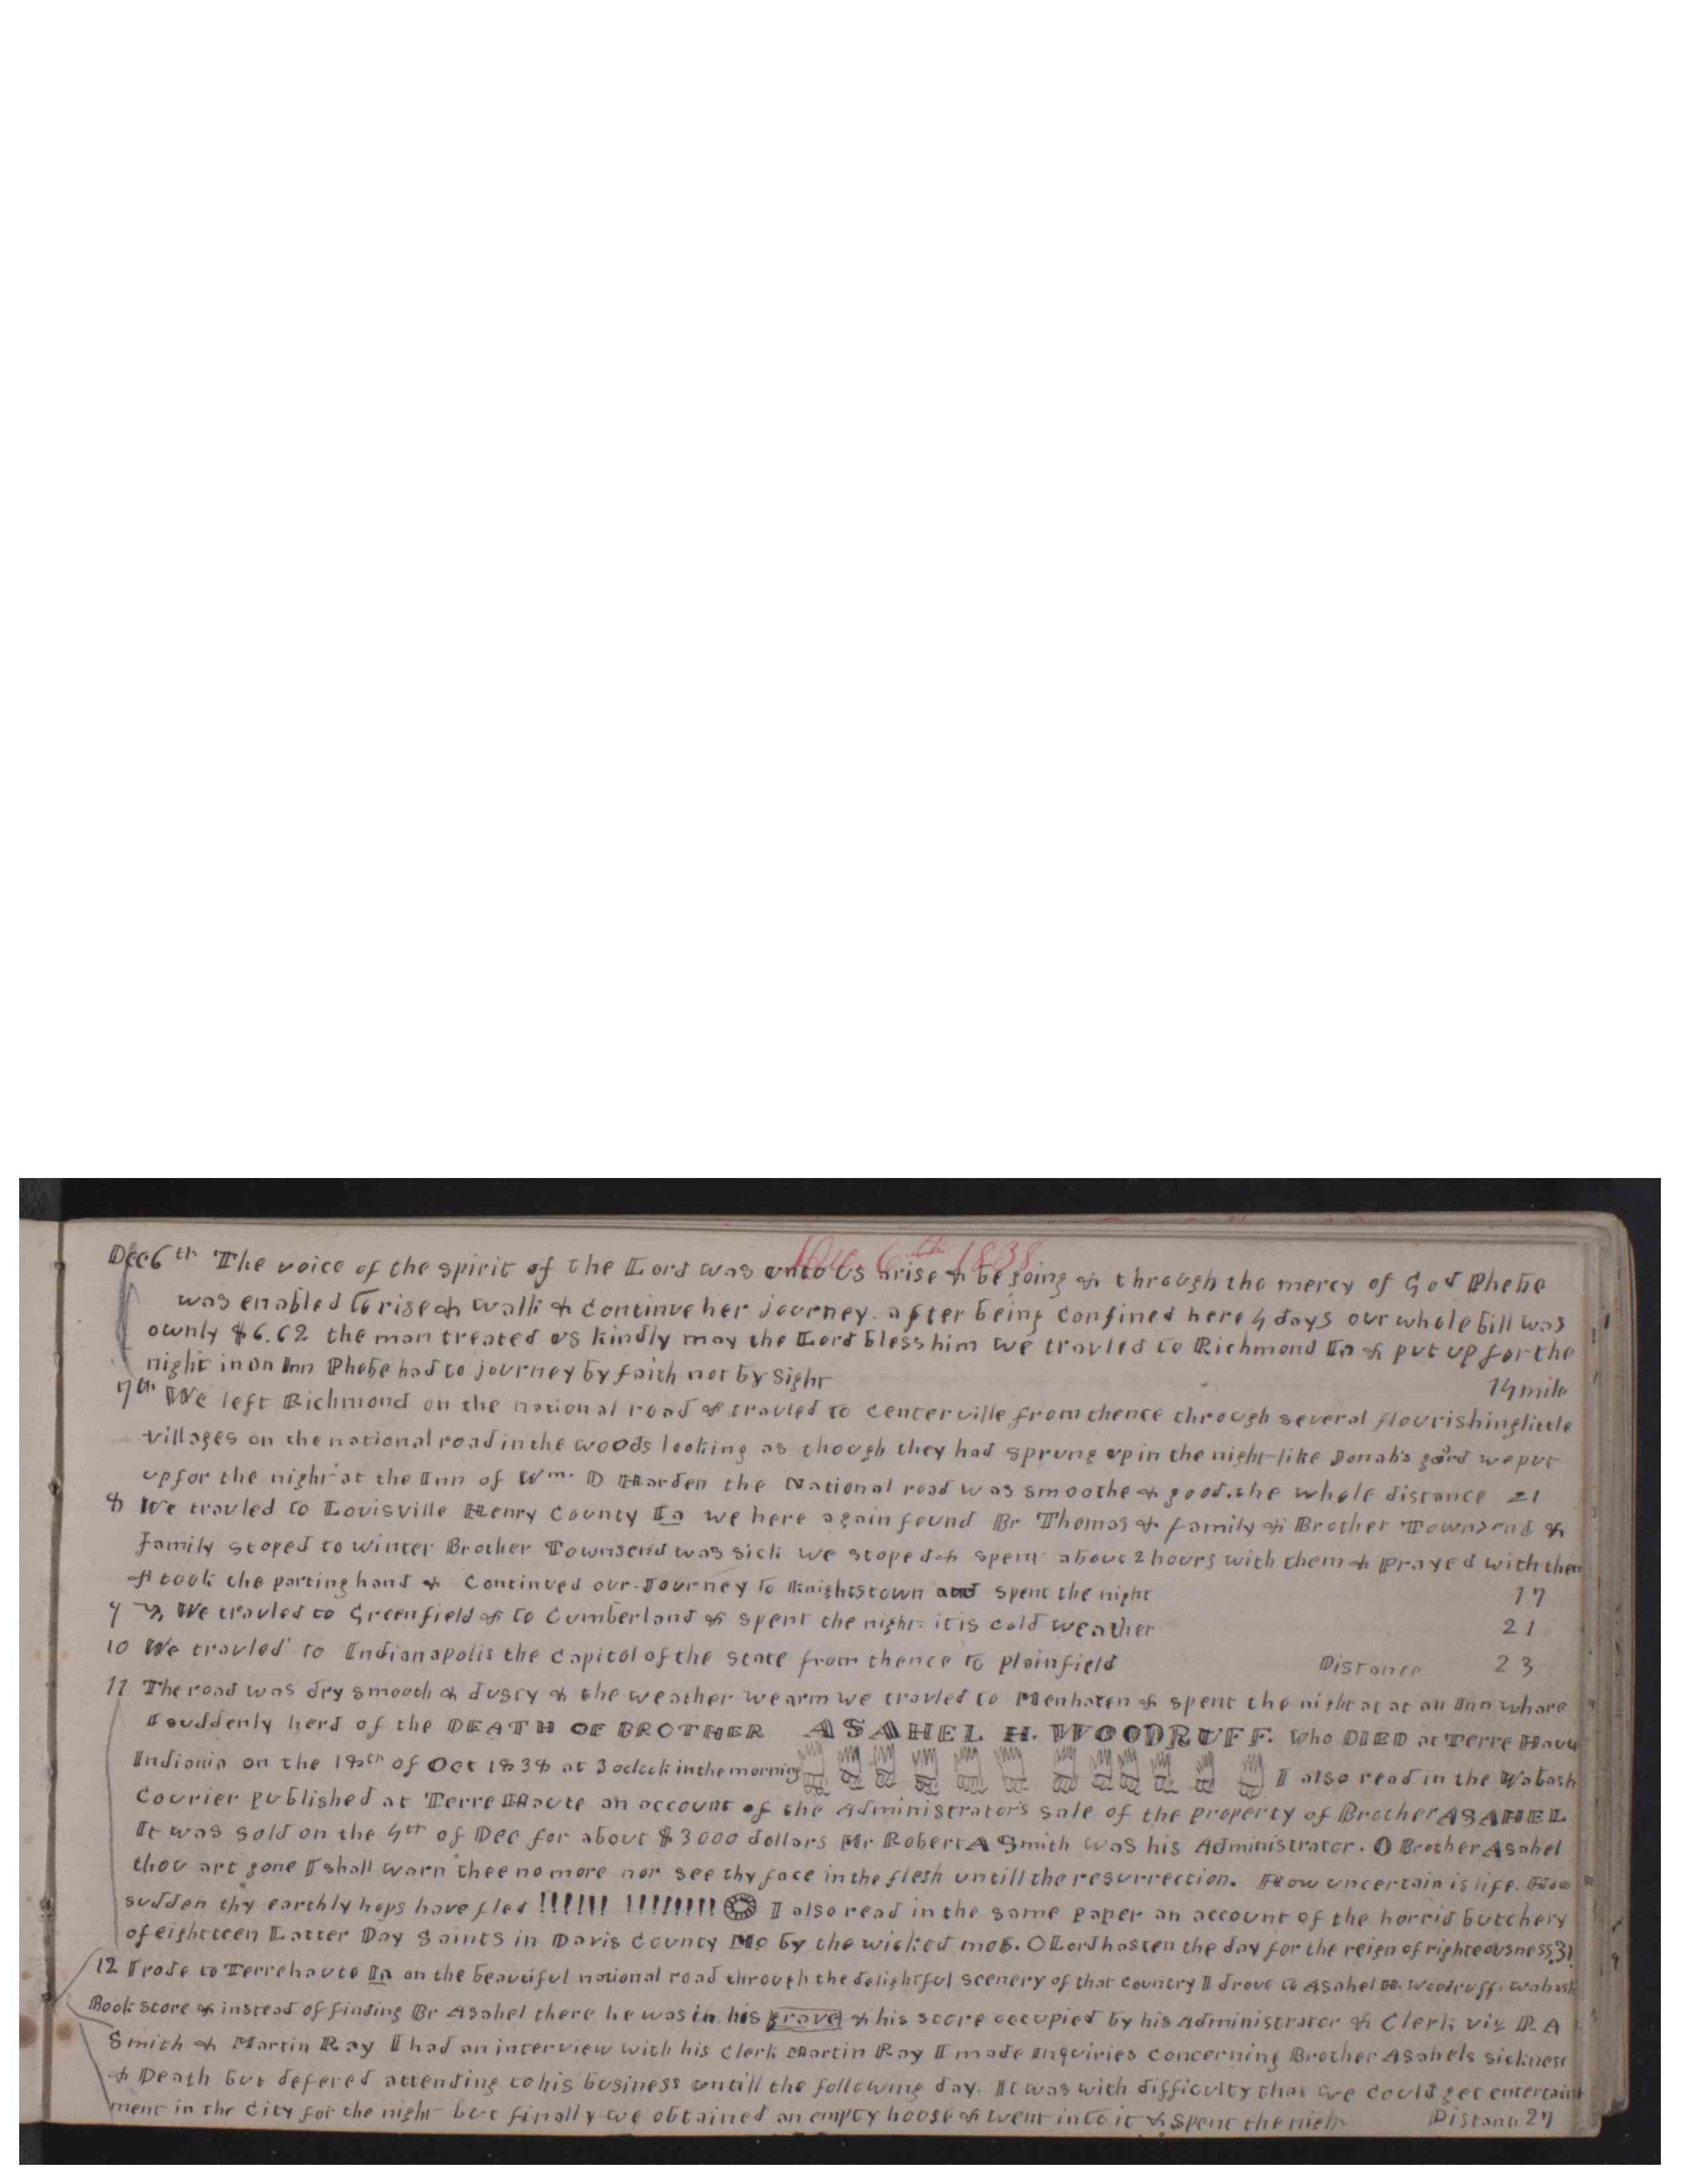 Dec. 6th 1838
Dec 6th The voice of the spirit of the Lord was unto us arise & be going & through the mercy of God Phebe
was enabled to rise & walk & continue her journey. after being confined here 4 days our whole bill was
ownly $6.62 the man treated us kindly may the Lord bless him we travled to Richmond Ia & put up for the
night in an Inn Phebe had to journey by faith not by Sight 14 mile
7th We left Richmond on the national road & travled to Centerville from thence through several flourishing little
villages on the national road in the woods looking as though they had sprung up in the night like Jonah's gord we put
up for the night at the Inn of Wm. D Harden the National road was smoothe & good. the whole distance 21
8 We travled to Louisville Henry County Ia we here again found Br Thomas & family & Brother Townsend &
family stoped to winter Brother Townsend was sick we stoped & spent about 2 hours with them & prayed with them
& took the parting hand & Continued our Journey to Knightstown and spent the night 17
9 We travled to Greenfield & to Cumberland & spent the night it is cold weather 21
10 We travled to Indianapolis the Capitol of the State from thence to Plainfield Distance 23
11 The road was dry smooth & dusty & the weather wearm we travled to Menhaten & spent the night at at an Inn whare
I suddenly herd of the DEATH OF BROTHER ASAHEL H. WOODRUFF. Who DIED at Terre Haut
Indiania on the 18th of Oct 1838 at 3 oclock in the morning I also read in the Wabash
Courier published at Terre Haute an account of the Administrator's Sale of the property of Brother ASAHEL
It was sold on the 4th of Dec for about $3000 dollars Mr Robert A Smith was his Administrator. O Brother Asahel
thou art gone I shall warn thee no more nor see thy face in the flesh untill the resurrection. How uncertain is life. How
sudden thy earthly hops have fled !!!!!! !!!!!!!! I also read in the same paper an account of the horrid butchery
of eighteen Latter Day Saints in Davis County Mo by the wicked mob. O Lord hasten the day for the reign of righteousness 31
12 I rode to Terrehaute Ia on the beautiful national road through the delightful scenery of that country I drove to Asahel H. Woodruffs Wabash
Book store & instead of finding Br Asahel there he was in his grave & his store occupied by his Administrator & Clerk viz R. A
Smith & Martin Ray I had an interview with his Clerk Martin Ray I made inquiries concerning Brother Asahels sickness
& Death but defered attending to his business untill the following day. It was with difficulty that we could get entertain
ment in the City for the night but finally we obtained an empty hoose & went into it & spent the nigh Distanc 27